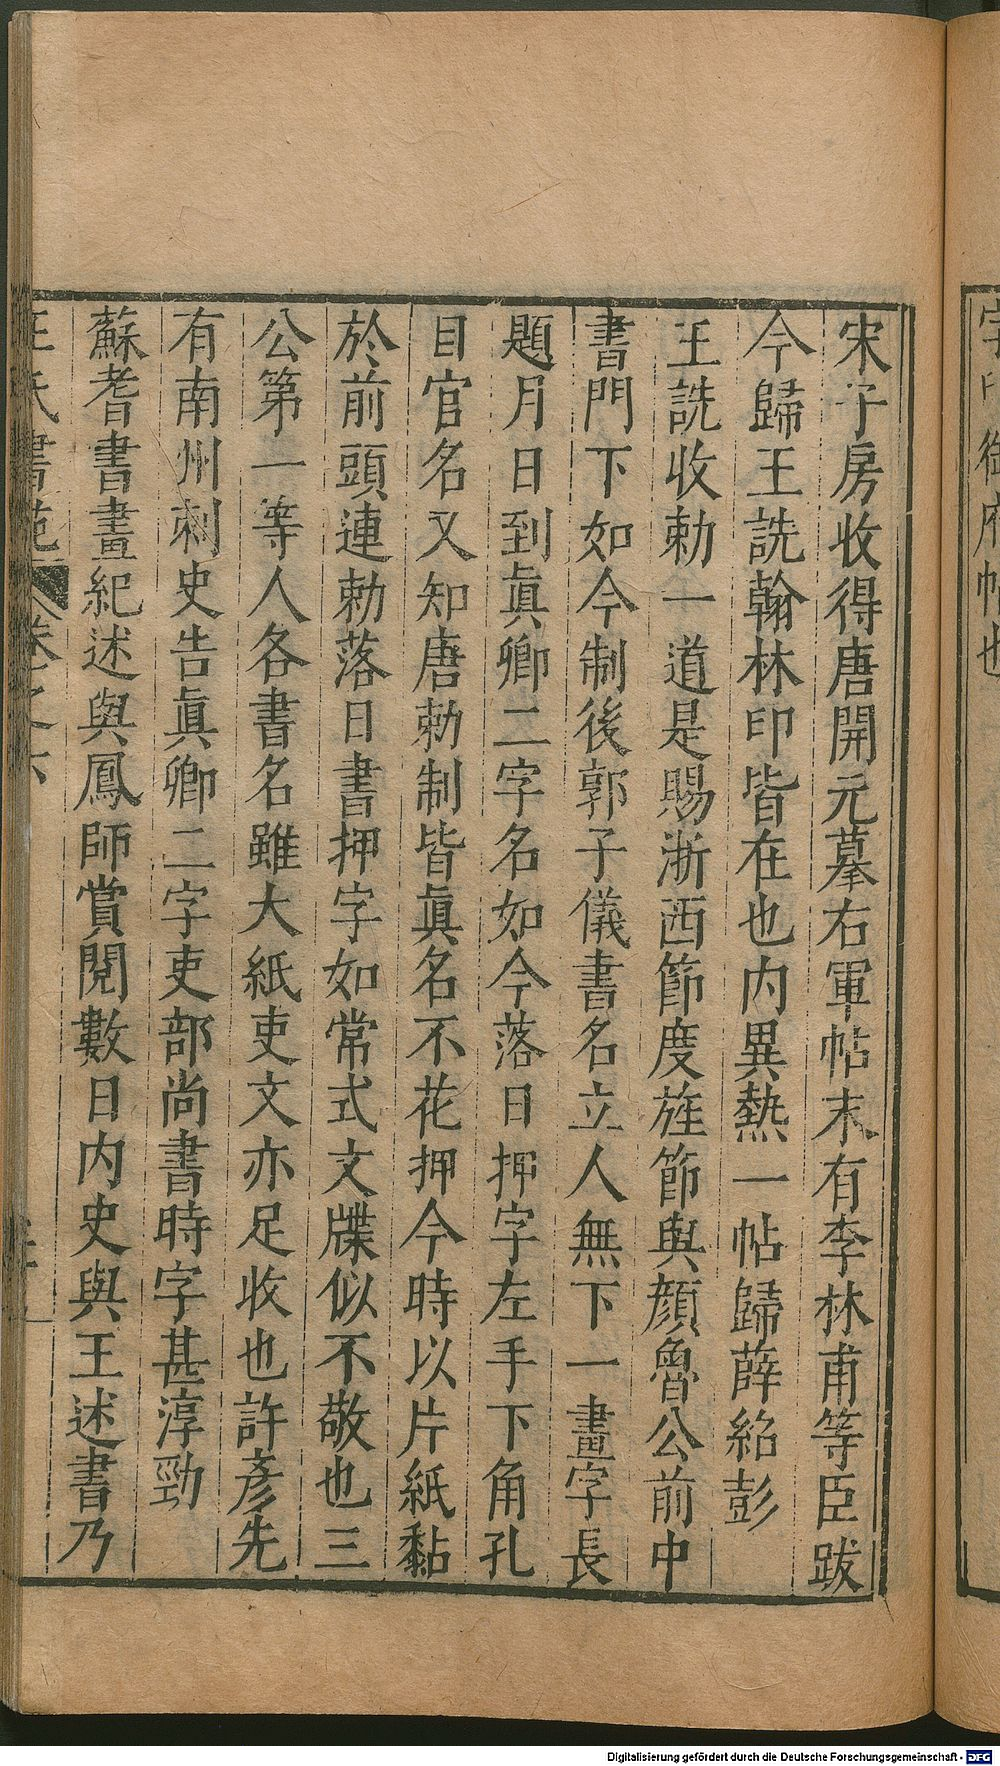 字印御府帖也
宋子房收得唐開元摹右軍帖末有李林甫等臣跋
今歸王詵翰林印皆在也内異熱一帖歸薛紹彭
王詵收勅一道是賜浙西節度旌節與顔魯公前中
書門下如今制後郭子儀書名立人無下一畫字長
題月日到眞卿二字名如今落日押字左手下角孔
目官名又知唐勅制皆眞名不花押今時以片紙黏
於前頭連勅落日書押字如常式文牒似不敬也三
公第一等人各書名雖大紙吏文亦足收也許彥先
有南州刺史告眞卿二字吏部尚書時字甚淳勁
蘇耆書畫紀述與鳳師賞閱數日内史與王述書乃
王氏書苑 卷之六
Digitalisierung gefördert durch die Deutsche Forschungsgemeinschaft - DFG